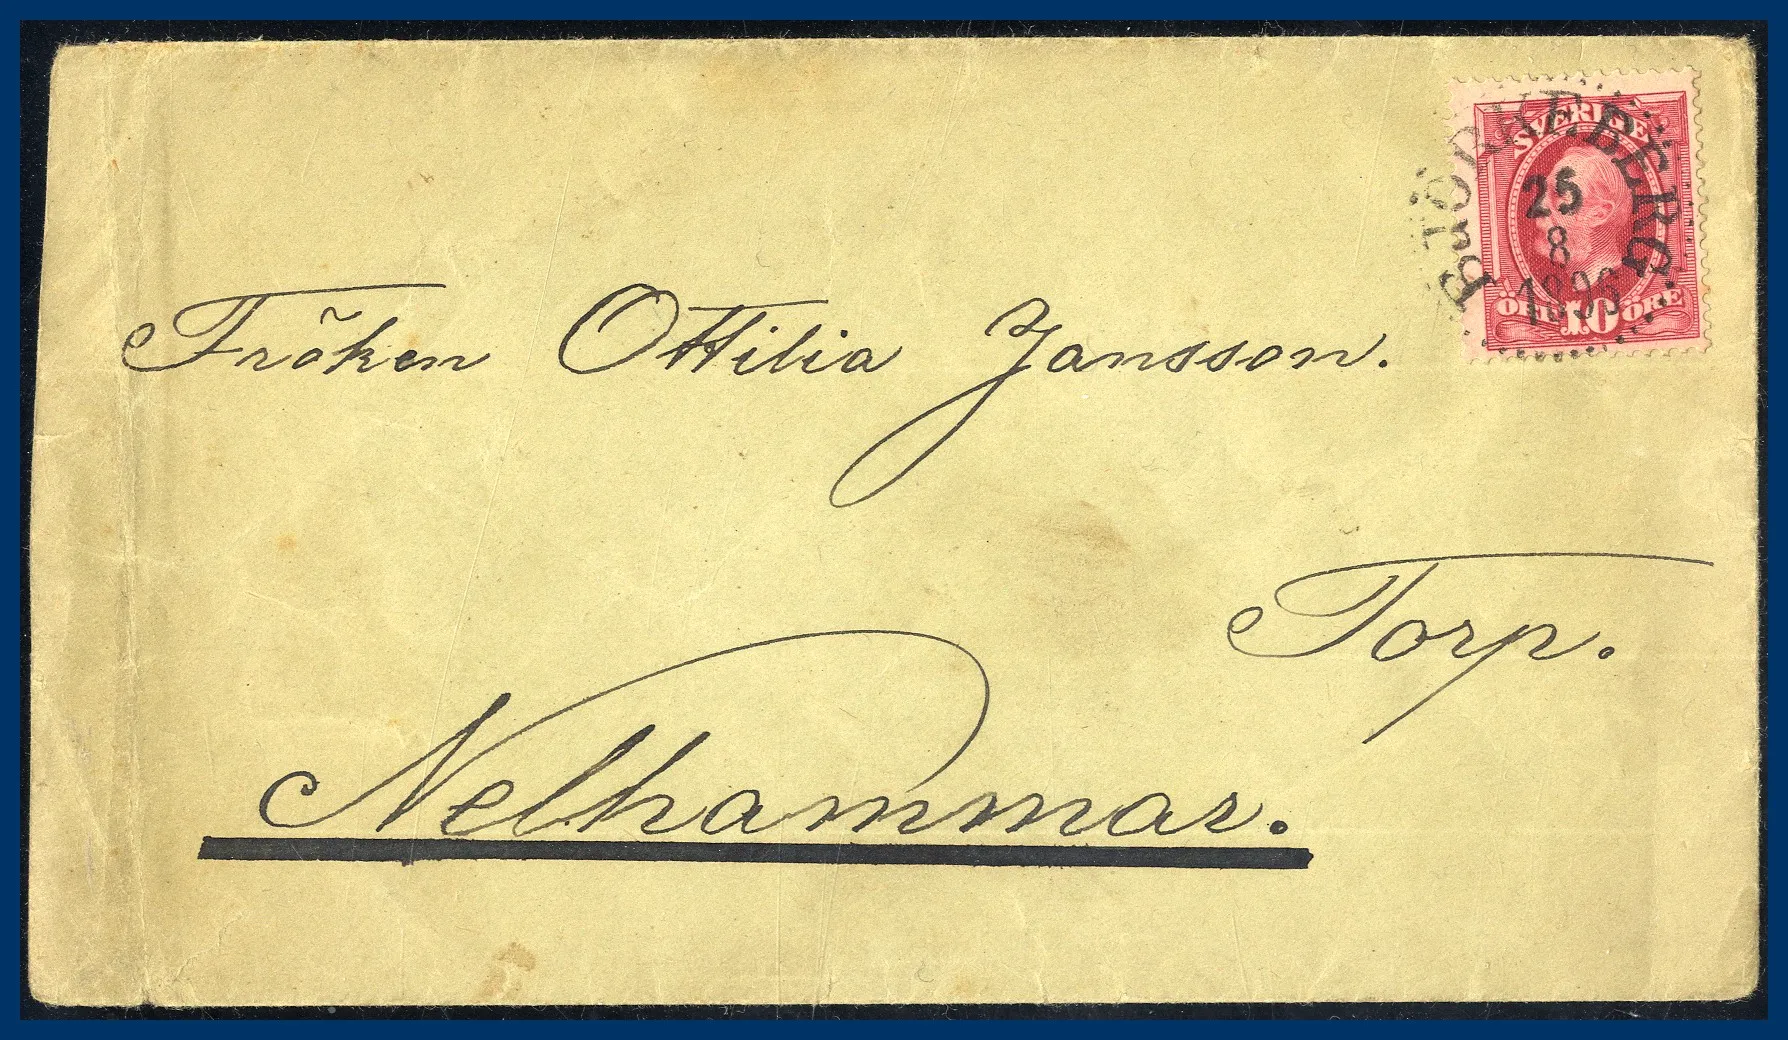 SVERIGE
BJÖRKEBERG
25
8
1896
ÖRE 10 ÖRE
Fröken Ottilia Jansson.
Torp.
Nelhammar.